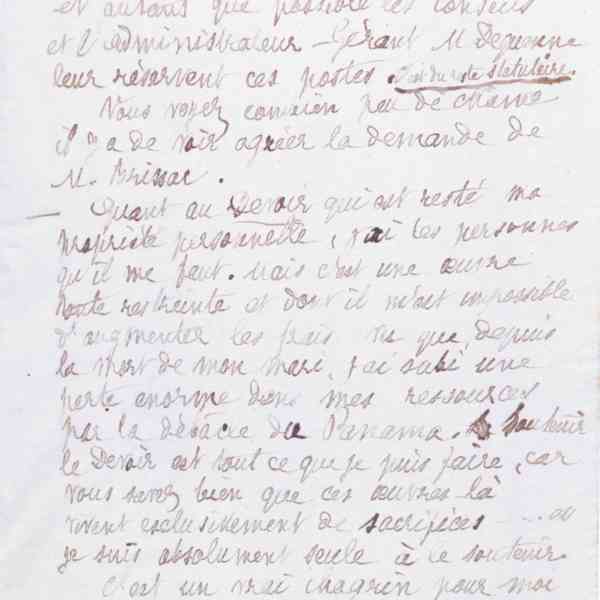 et autant que possible les conseils
et l'Administrateur-Gérant M Dequenne
leur réservent ces postes. C'est du reste statutaire.
Vous voyez combien peu de chance
il y a de voir agréer la demande de
M. Brissac.
— Quant au Devoir qui est resté ma
propriété personnelle, j'ai les personnes
qu'il me faut. Mais c'est une œuvre
toute restreinte et dont il m'est impossible
d'augmenter les frais vu que, depuis
la mort de mon mari, j'ai subi une
perte énorme dans mes ressources
par la débacle du Panama. Soutenir
le Devoir est tout ce que je puis faire, car
vous savez bien que ces œuvres-là
vivent exclusivement de sacrifices
je suis absolument seule à le soutenir.
C'est un vrai chagrin pour moi